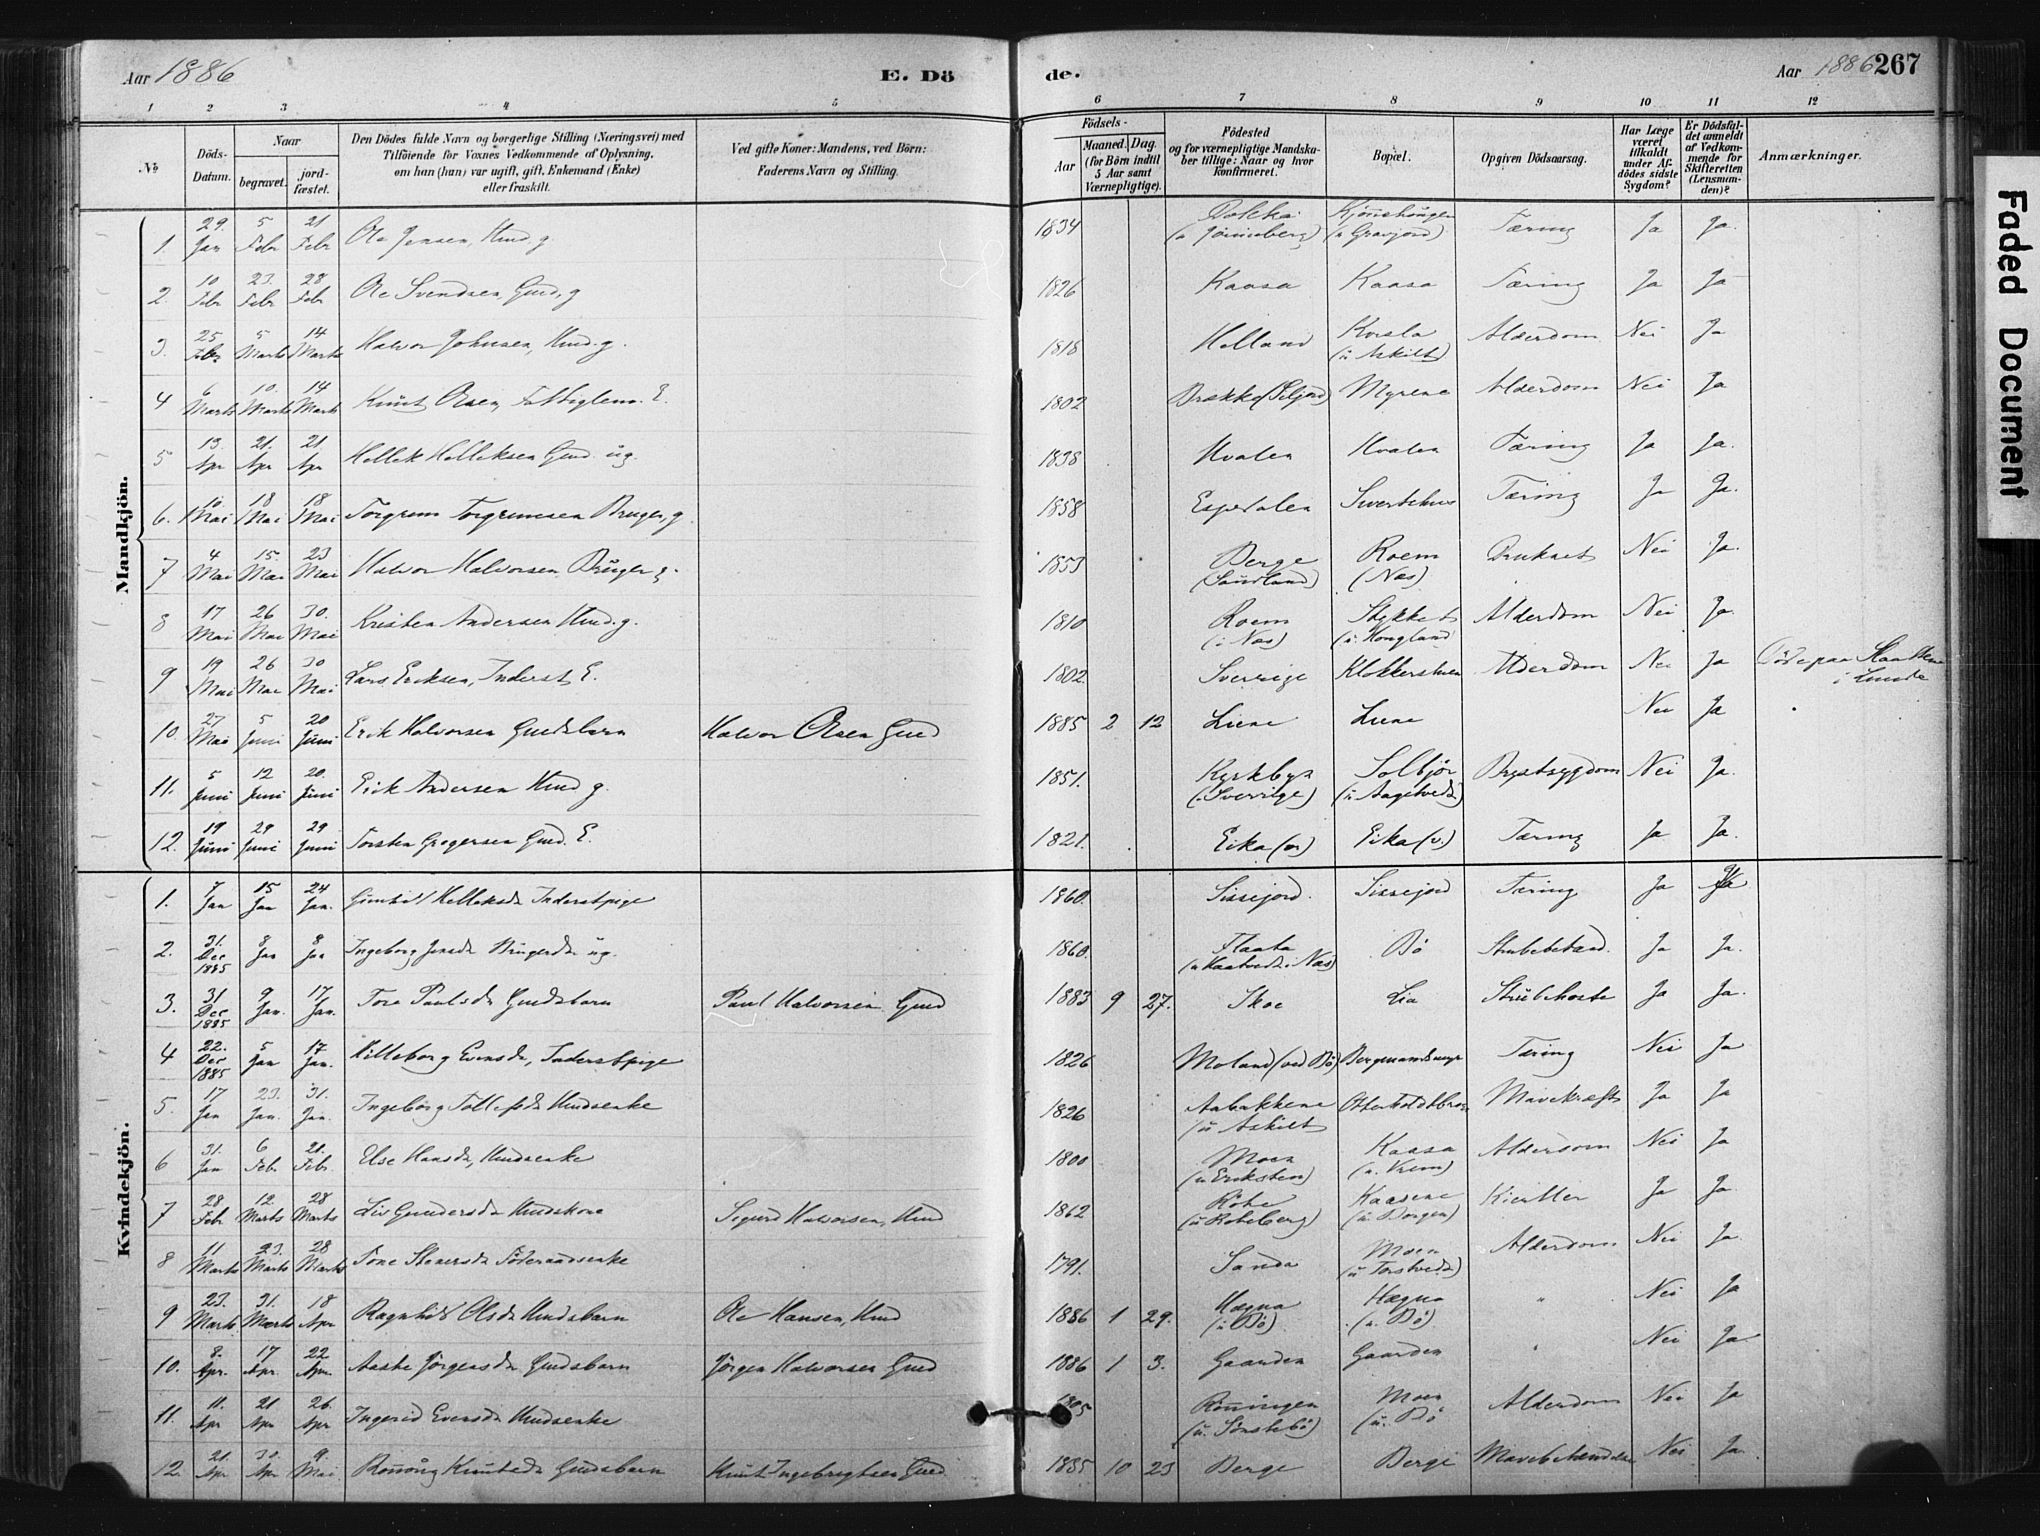 Aar 1886
E. Dö
de.
Aar 1886 267
1 2 3 4 5 6 7 8 9 10 11 12
№
Döds-Datum.
Naar
begravet.
jord-fæstet.
Den Dödes fulde Navn og borgerlige Stilling (Næringsvei) med
Tilföiende for Voxnes Vedkommende af Oplysning,
om han (hun) var ugift, gift, Enkemand (Enke)
eller fraskilt.
Ved gifte Koner: Mandens, ved Börn:
Faderens Navn og Stilling.
Födsels-
Aar
Maaned. Dag.
(for Börn indtil
5 Aar samt
Værnepligtige).
Födested
og for værnepligtige Mandska-
ber tillige: Naar og hvor
konfirmeret.
Bopæl.
Opgiven Dödsaarsag.
Har Læge
været
tilkaldt
under Af-
dödes sidste
Sygdom?
Er Dödsfal-
det anmeldt
af Vedkom-
mende for
Skifteretten
(Lensman-
den)?
Anmærkninger.
Mandkjön.
1. 29. Jan 5 Febr 21 Febr Ole Jensen, Hmd. g. 1834 Tæring Ja Ja.
2. 10 Febr 23. Febr 28 Febr Ole Svendsen, Gmd, g 1826 Kaasa Kaasa Tæring Ja Ja
3. 25 Febr 5 Marts 14 Marts Halvor Johnsen, Hmd. g. 1818 Helland (u Askilt) Alderdom Nei Ja
4 6 Marts 10. Marts 14 Marts Knut Olsen, Fattiglem. E. 1802 Brække (Seljord) Myrene Alderdom Nei Ja
5 13. Apr 21. Apr 21. Apr Hellek Helleksen Gmd. ug. 1838 Hvalen Hvalen Tæring Ja Ja.
6. 10 Mai 18 Mai 18 Mai Torgrim Torgrimsen Bruger, g. 1858 Espedalen Sivertshus Tæring Ja Ja.
7 4 Mai 15. Mai 23 Mai Halvor Halvorsen Bruger g. 1853 Berge (Sauland) Roem (Næs) Druknet Nei Ja.
8 17 Mai 26 Mai 30. Mai Kristen Andersen Hmd. g. 1810 Roem (i Næs) Alderdom Nei Ja.
9 19 Mai 26 Mai 30 Mai Lars Eriksen, Inderst E. 1802. Sverrige Alderdom Nei Ja Döde paa i Lunde
10. 27 Mai 5 Juni 20 Juni Erik Halvorsen Gmdsbarn Halvor Olsen Gmd 1885 2 12 Liene Liene Nei Ja
11. 5 Juni 12 Juni 20. Juni Erik Andersen Hmd g. 1851. (i Sverrige) Solbjör Brystsygdom Nei Ja.
12. 19 Juni 29 Juni 29 Juni Torsten Gregersen Gmd. E. 1821. Eika Eika Tæring Ja Ja.
Kvindekjön.
1. 7 Jan 15 Jan 24 Jan. Gunhild Helleksdr Inderstpige 1860. Sissejord. Sissejord Tæring Ja Ja
2. 31. Dec 1885 8 Jan 8 Jan Ingeborg Jensdr ug. 1860. Flaata Bö Ja Ja.
3. 31 Dec 1885 9 Jan. 17 Jan. Tone Paulsdr Gmdsbarn Paul Halvorsen Gmd 1883 9 27. Skoe Lia Strubehoste Ja Ja.
4 22. Dec 1885 5 Jan 17 Jan. Hilleborg Evensdr, Inderstpige 1826 Moland (ved Bö) Tæring Nei Ja
5. 17 Jan 23. Jan. 31. Jan. Ingeborg Tollefsdr Hmdsenke 1826 Aabakkene (u Askilt) Mavekræft Ja Ja
6 31. Jan 6 Febr 21. Febr. Else Hansdr, Hmdsenke 1800 Moen Kaasa Alderdom Nei Ja
7 28 Febr 12. Marts 28 Marts Liv Gundersdr Hmdskone Sigurd Halvorsen, Hmd 1862 Kaasene (u. Borgen) Kirtler Ja Ja.
8 11 Marts 23. Marts 28 Marts Tone Steners dr Föderaadsenke 1791. Sanda Moen Alderdom Nei Ja.
9 23. Marts 31. Marts 18 Apr Ragnhild Olsdr Hmdsbarn Ole Hansen, Hmd 1886 1 29. Hægna (u Bö) Hægna (u. Bö) " Nei Ja
10. 8. Apr. 17 Apr. 22 Apr. Aaste Jörgensdr Gmdsbarn Jörgen Halvorsen Gmd 1886 1 3. Gaarden Gaarden " Nei Ja
11. 11. Apr 21 Apr 26. Apr Ingerid Evensdr Hmdsenke 1805 Rönningen Moen (u. Bö Alderdom Nei Ja
12. 21. Apr 30. Apr 9. Mai Knutsdr Gmdsbarn Knut Ingebrigtsen Gmd 1885 10 23 Berge Berge Mavebetændelse Nei Ja.
Faded Document